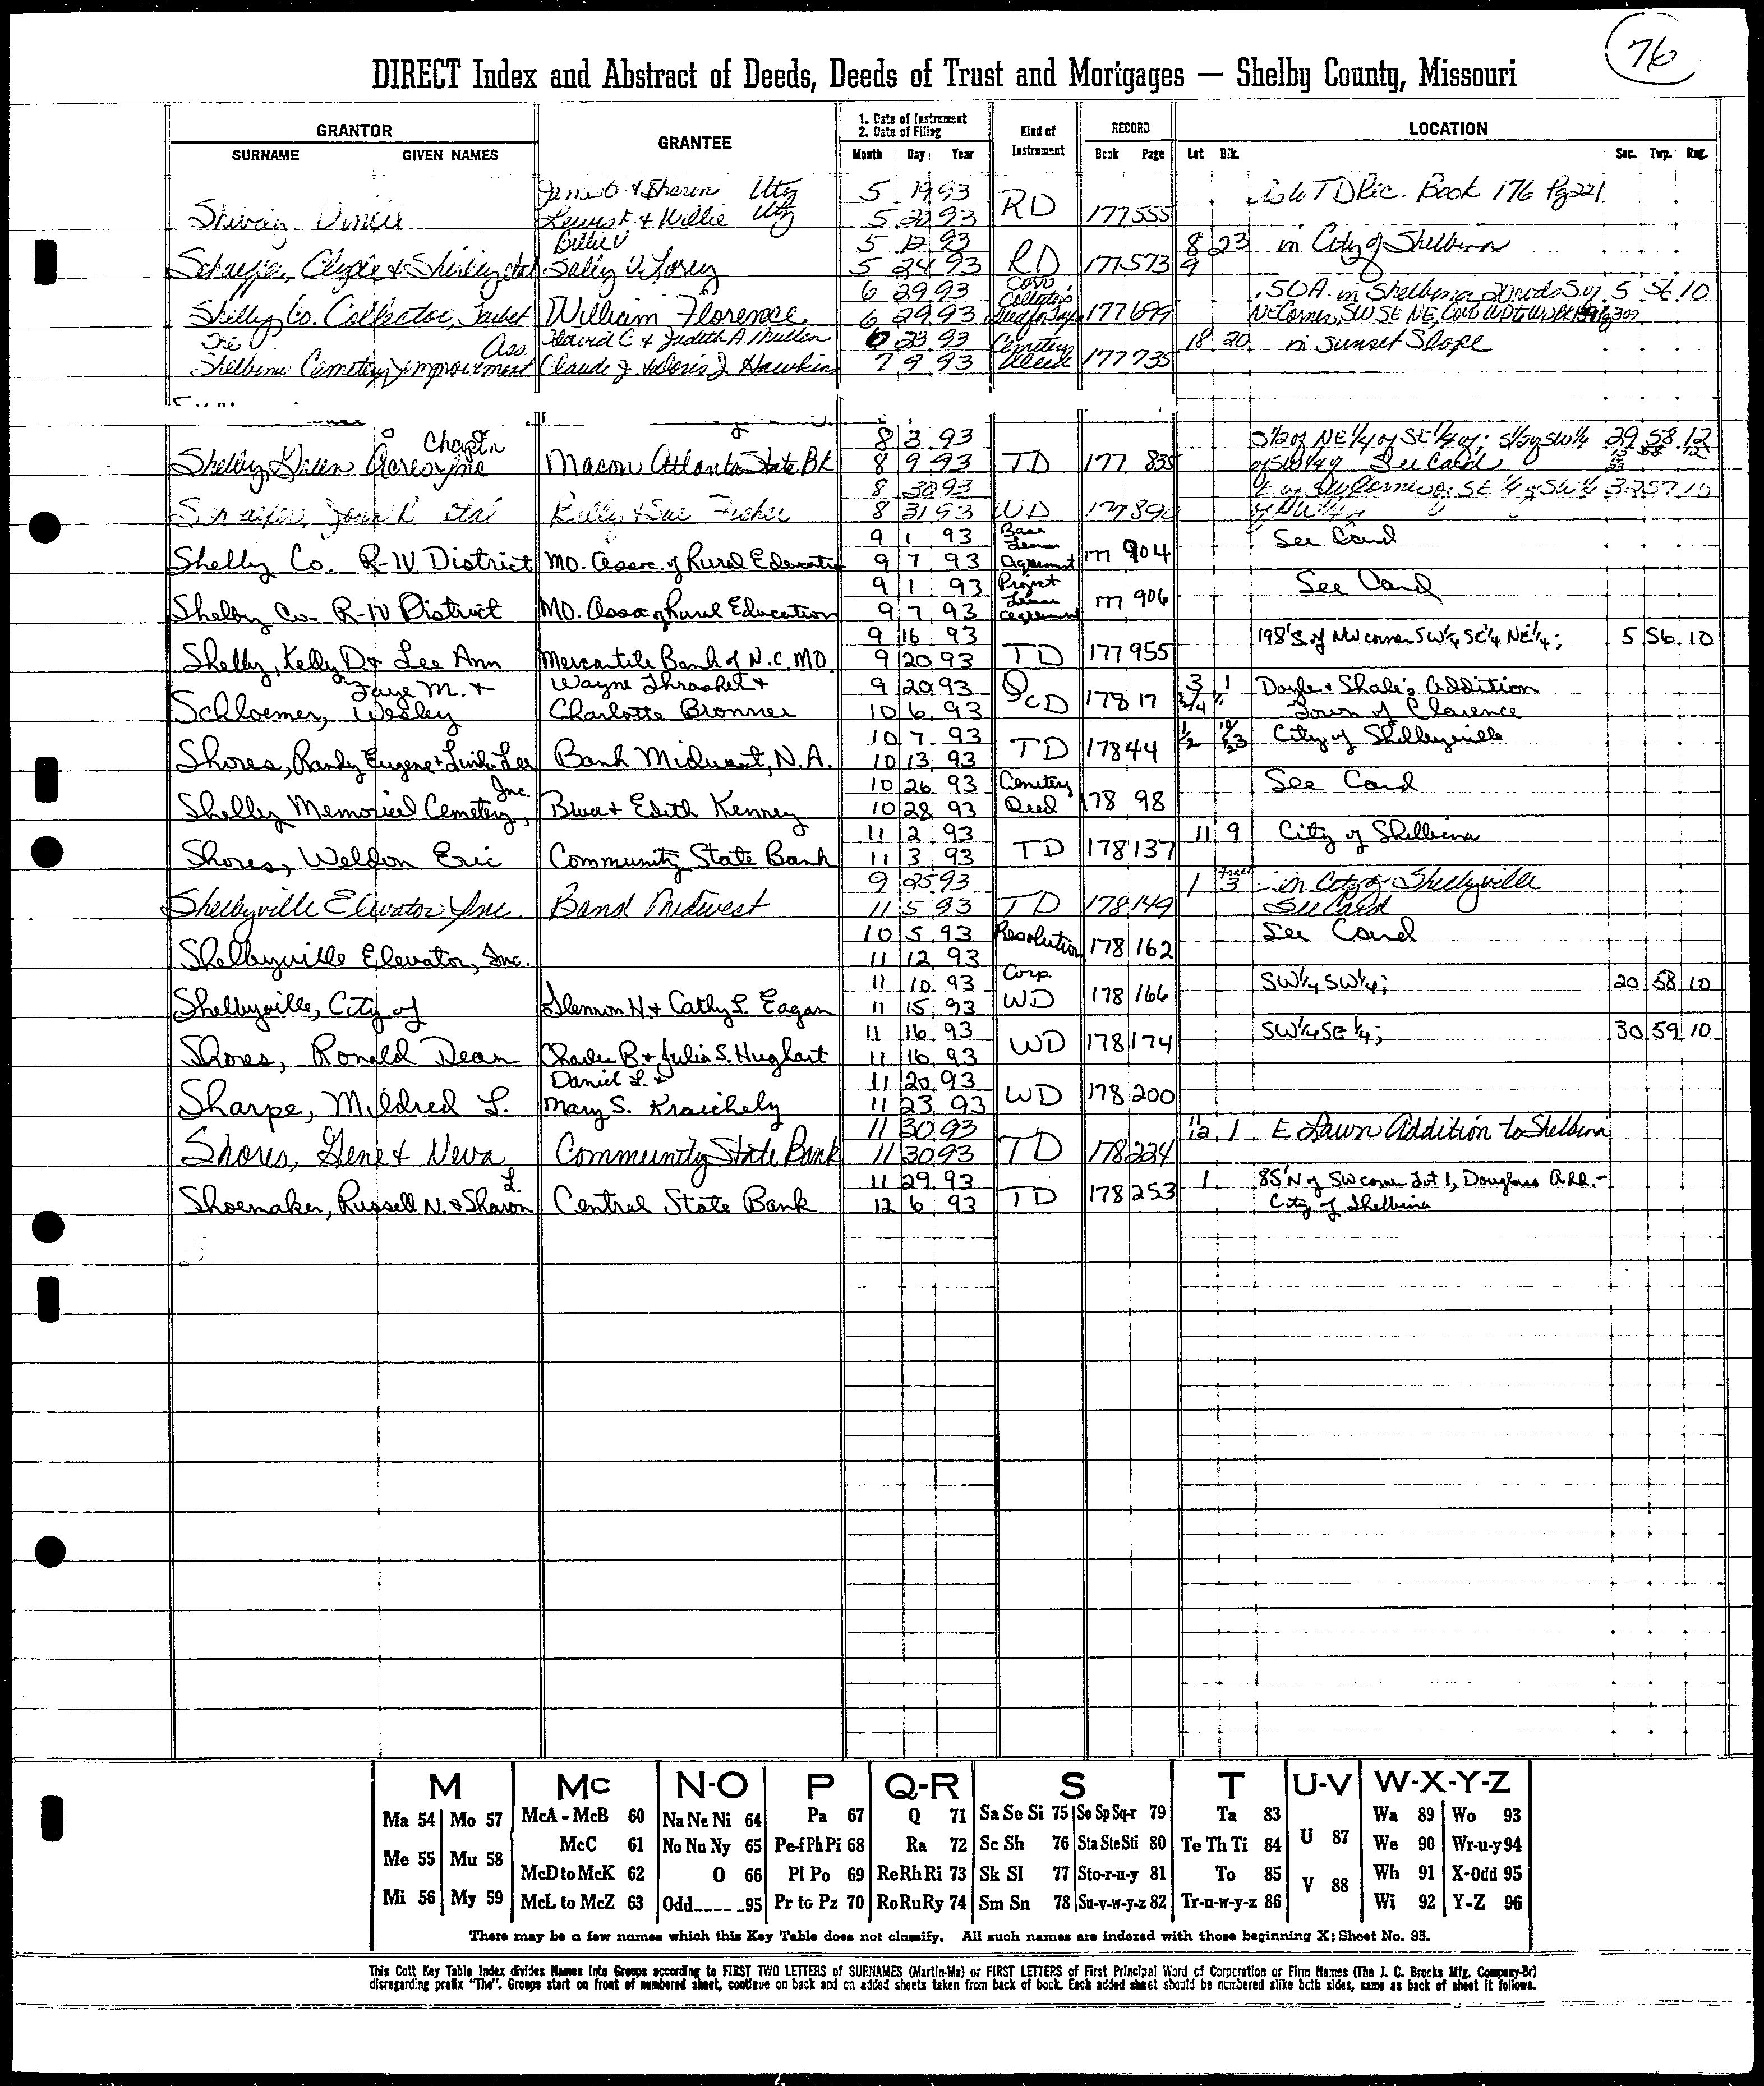 76
DIRECT Index and Abstract of Deeds, Deeds of Trust and Mortgages — Shelby County, Missouri
GRANTOR
SURNAME GIVEN NAMES
GRANTEE
1. Date of Instrument
2. Date of Filing
Month Day Year
Kind of
Instrument
RECORD
Book Page
LOCATION
Lot Blk. Sec. Twp. Rng.
& Sharon Utz 5 19 93 TD Rec. Book 176 Pg 221
& Willie Utz 5 20 93 RD 177 555
Billie V 5 12 93 8 23 in City of Shelbina
Schaefer, Clyde & Shirley etal Sally V. 5 24 93 RD 177 573 9
6 29 93 Corr. .50A. in Shelbina 20 rods S. of 5 56 10
Shelby Co. Collector, William Florence 6 29 93 Collector's 177 699 NE Corner, SW SE NE,
The Ass. David C & Judith A. Mullen 6 23 93 Cemetery 18 20 in Sunset Slope
Shelbina Cemetery Improvement Claude J & Doris J Hawkins 7 9 93 Deed 177 735
Chapt'n 8 3 93 S½ of NE¼ of SE¼ of; S½ of SW¼ 29 58 12
Shelby Green Acres Inc Macon Atlanta State Bk 8 9 93 TD 177 835 of SW¼ of See Card
8 30 93 of SW Corner of SE ¼ of SW ¼ 32 57 10
Schaefer, John etal Billy & Sue Fisher 8 31 93 WD 177 890 of NW¼ of
9 1 93 Base Lease See Card
Shelby Co. R-IV District MO. Assoc. of Rural Education 9 7 93 Agreement 177 904
9 1 93 Project Lease See Card
Shelby Co. R-IV District MO. Assoc of Rural Education 9 7 93 Agreement 177 906
9 16 93 198'S of NW corner SW¼ SE¼ NE¼; 5 56 10
Shelby, Kelly D & Lee Ann Mercantile Bank of N.C. MO 9 20 93 TD 177 955
Faye M. & Wayne Thrasher & 9 20 93 QCD 3 1 Doyle & Shale's Addition
Schloemer, Wesley Charlotte Bronner 10 6 93 178 17 Town of Clarence
10 7 93 City of Shelbyville
Shores, Randy Eugene & Linda Lee Bank Midwest, N.A. 10 13 93 TD 178 44
Inc. 10 26 93 Cemetery See Card
Shelby Memorial Cemetery, & Edith Kenney 10 28 93 Deed 178 98
11 2 93 11 9 City of Shelbina
Shores, Weldon Eric Community State Bank 11 3 93 TD 178 137
9 25 93 1 3 in City of Shelbyville
Shelbyville Elevator Inc. Band Midwest 11 5 93 TD 178 149 See Card
10 5 93 Resolution See Card
Shelbyville Elevator, Inc. 11 12 93 178 162
11 10 93 Corp. SW¼ SW¼; 20 58 10
Shelbyville, City of Glennon H. & Cathy L. Eagan 11 15 93 WD 178 166
11 16 93 SW¼ SE¼; 30 59 10
Shores, Ronald Dean Charles B & Julia S. Hughart 11 16 93 WD 178 174
Daniel L. & 11 20 93
Sharpe, Mildred L. Mary S. Kraichely 11 23 93 WD 178 200
11 30 93 11 12 1 E Lawn Addition to Shelbina
Shores, Gene & Neva Community State Bank 11 30 93 TD 178 224
L. 11 29 93 1 85'N of SW corner Lot 1, Douglass Add.-
Shoemaker, Russell N. & Sharon Central State Bank 12 6 93 TD 178 253 City of Shelbina
M Mc N-O P Q-R S T U-V W-X-Y-Z
Ma 54 Mo 57 McA - McB 60 Na Ne Ni 64 Pa 67 Q 71 Sa Se Si 75 So Sp Sq-r 79 Ta 83 U 87 Wa 89 Wo 93
McC 61 No Nu Ny 65 Pe-f Ph Pi 68 Ra 72 Sc Sh 76 Sta Ste Sti 80 Te Th Ti 84 We 90 Wr-u-y 94
Me 55 Mu 58 McD to McK 62 O 66 Pl Po 69 Re Rh Ri 73 Sk Sl 77 Sto-r-u-y 81 To 85 V 88 Wh 91 X-Odd 95
Mi 56 My 59 McL to McZ 63 Odd 95 Pr to Pz 70 Ro Ru Ry 74 Sm Sn 78 Su-v-w-y-z 82 Tr-u-w-y-z 86 Wi 92 Y-Z 96
There may be a few names which this Key Table does not classify. All such names are indexed with those beginning X; Sheet No. 95.
This Cott Key Table Index divides Names into Groups according to FIRST TWO LETTERS of SURNAMES (Martin-Ma) or FIRST LETTERS of First Principal Word of Corporation or Firm Names (The J. C. Brooks Mfg. Company-Br)
disregarding prefix "The". Groups start on front of numbered sheet, continue on back and on added sheets taken from back of book. Each added sheet should be numbered alike both sides, same as back of sheet it follows.